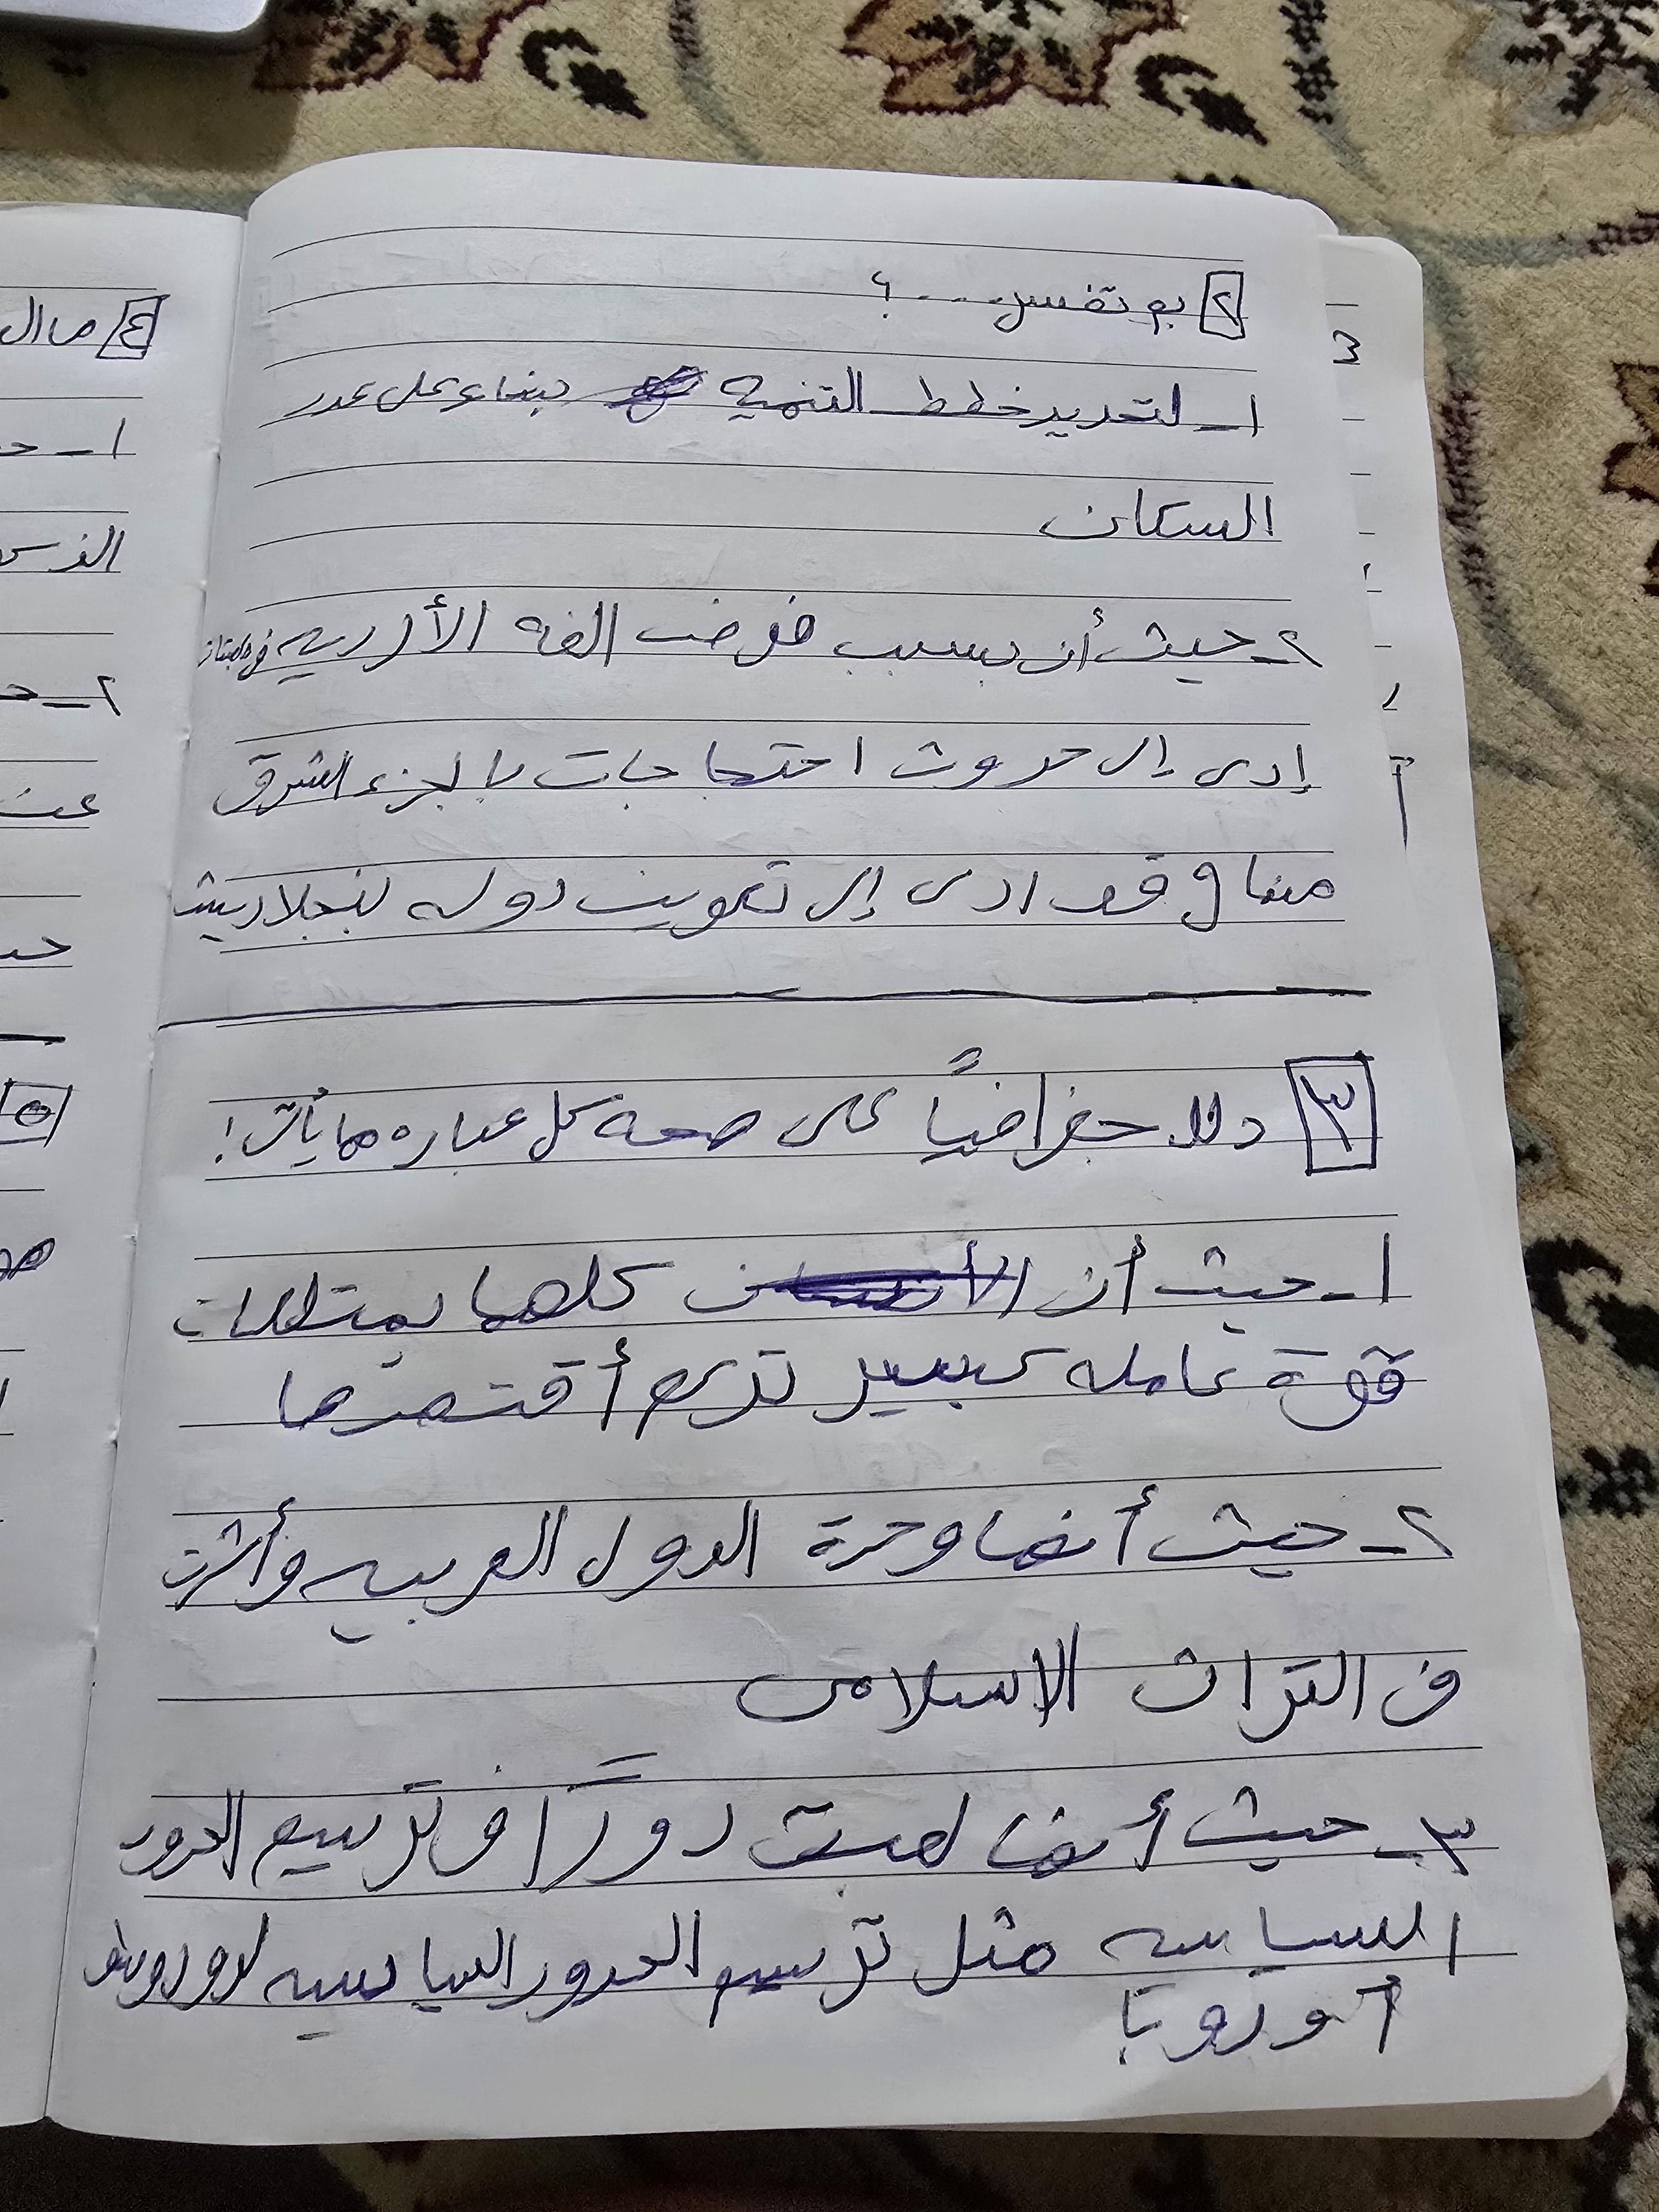 ٢ بم تفسر....؟
١- لتحديد خطط التنمية بناء على عدد
السكان
٢- حيث أن بسبب فرض الغه الأرديه في باكستان
إدى إلى حدوث احتجاجات بالجزء الشرقى
منها وقد ادى إلى تكوين دوله بنجلاديش
٣ دلل جغرافياً على صحه كل عباره مما يأتى:
١- حيث أن كلهما يمتلكان
قوة عامله كبير تدعم أقتصدها
٢- حيث أنها وحدة الدول العربيه وأثرت
فى التراث الاسلامى
٣- حيث أنها لعبت دوراً فى ترسيم الحدود
السياسيه مثل ترسيم الحدود السياسيه
آوروبا
٤ ما ال
١- ح
٢- ح
٥